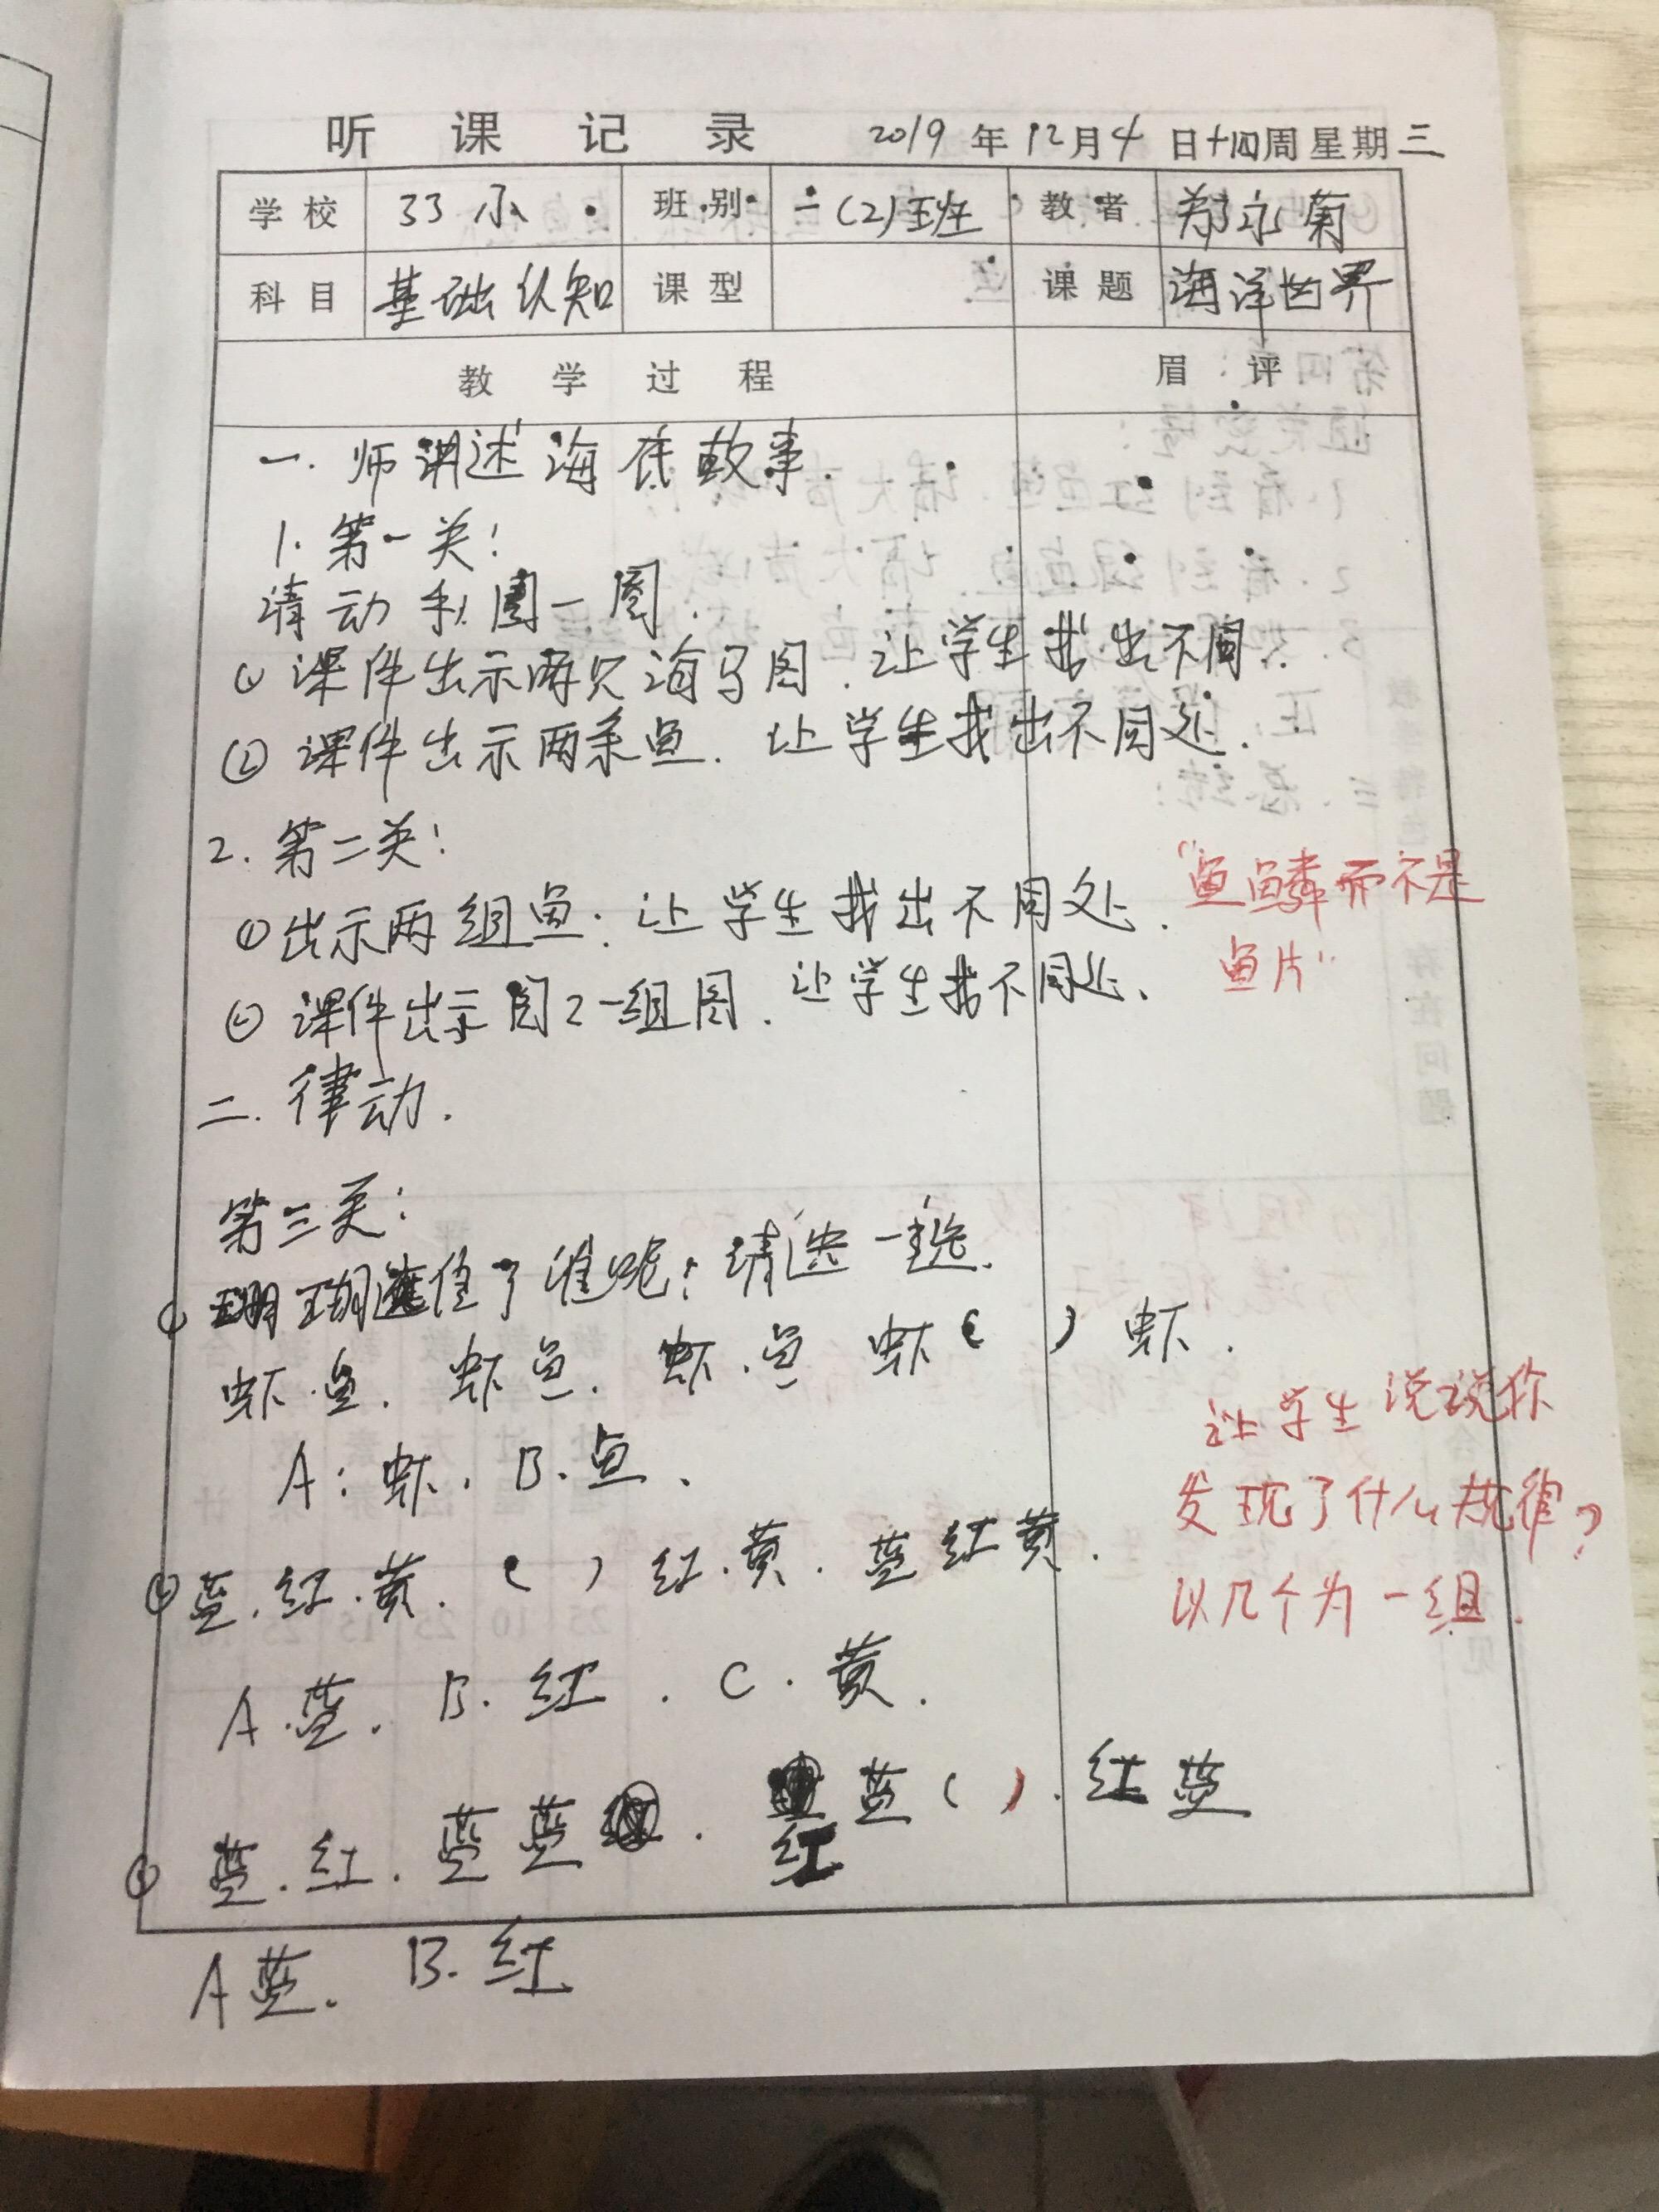 听课记录 2019年12月4日十四周星期三
学校 33小 班别 二(2)班 教者 郑永菊
科目 基础认知 课型 课题 海洋世界
教学过程 眉评
一.师讲述海底故事
1.第一关:
请动手圈一圈.
①课件出示两只海马图.让学生找出不同.
②课件出示两条鱼.让学生找出不同处.
2.第二关:
①出示两组鱼:让学生找出不同处.
"鱼鳞而不是
鱼片"
②课件出示图2一组图.让学生找不同处、
二.律动.
第三关:
①珊瑚遮住了谁呢?请选一选.
虾.鱼.虾鱼.虾.鱼 虾( )虾.
A:虾.B.鱼、
让学生说说你
发现了什么规律?
以几个为一组.
②蓝.红.黄.( )红.黄.蓝红黄.
A.蓝.B.红.C.黄.
③蓝.红.蓝蓝.红蓝( ).红蓝
A蓝.B.红